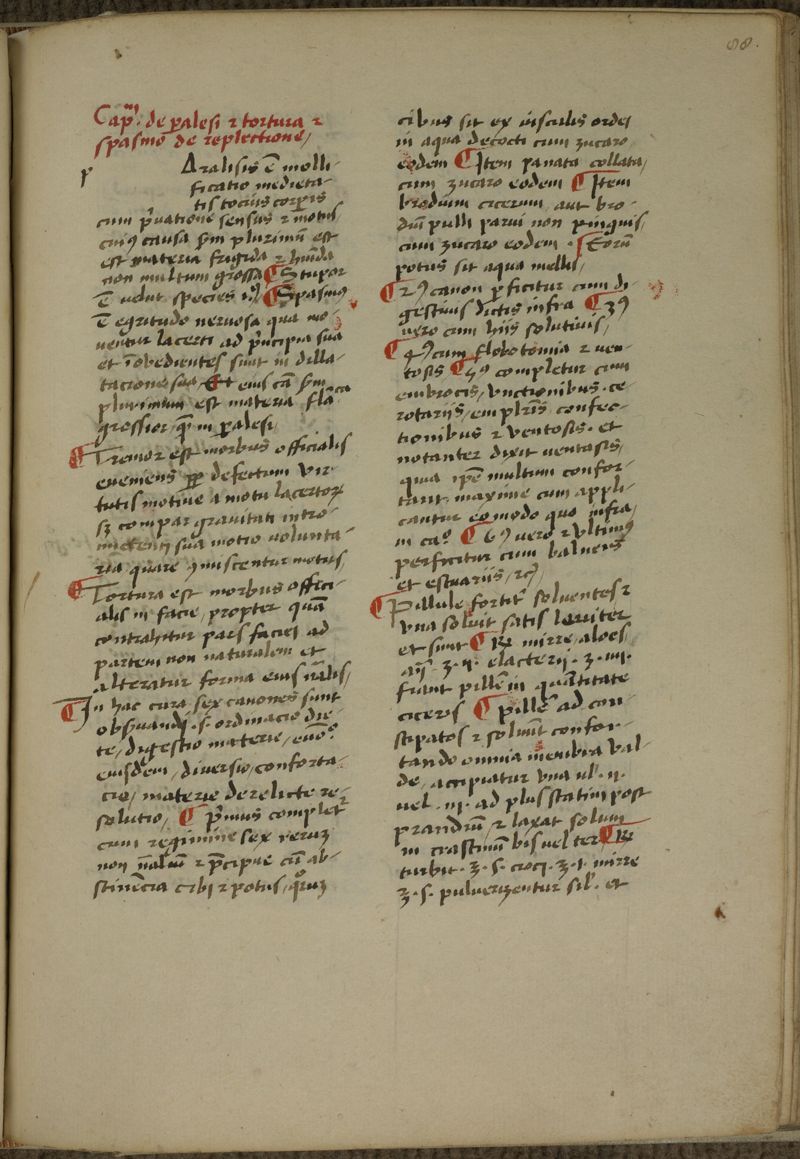 88.
Cap̃m. de palesi ⁊ tortura ⁊
spasmo de replectione/
p Aralisis ē molli-
ficatio medieta-
tis tocius corp̄is
cum p̄uatione sensus ⁊ motus/
cuiꝰ causa sm̄ plurimū est
est materia frigida ⁊ hūīda
non multum grossa ¶ Stupor
ē uelut species
¶ Spasmꝰ
ē egritudo neruosa qua mo-
uentur lacerti ad p̄ncipia sua
et īobedientes sunt in dilla-
tacione sua Et eius cā sm̄
plurimum est materia flāca
grossior q̄ in palesi/
¶ Tremor est morbus officialis
eueniens ꝓp̄ defectum vir-
tutis motiue a motu lacertoꝝ
sꝫ compar grauitati intro-
mittenti sua motio volunta-
ria quare ꝯmiscentur motus/
¶ Tortura est morbus offici-
alis in facie, propter quā
contrahitur pars faciei ad
partem non naturalem et
alteratur forma eius n̄alis/
¶ In hac cura sex canones sunt
obseruandi .s. ordinacio die-
te, digestio materie, euōᵒ
eiusdem, diuersio, conforta-
cio, materie derelicte re-
solutio/ ¶ p̄mus completᷣ
cum regimine sex rerum
non n̄aliū ⁊ p̄cipue cū ab-
stinēcia cibi ⁊ potus, quorꝫ
cibus sit ex iusculis ordei
in aqua decocti cum zucaro
eodem ¶ Item panata collata/
cum zucaro eodem ¶ Item
brodium cicerum, aut bro-
diū pulli parui non pinguis/
cum zucaro eodem . Eorū
potus sit aqua mellis/
¶ 2ꝰ canon p̄ficitur cum di-
gestiuis dictis infra ¶ 3ꝰ
uero cum hiis solutiuis/
¶ 4ꝰ cum flobotomia ⁊ uen-
tosis ¶ 5ꝰ completur cum
embrocis, vnctionibus, ce-
rotariis, emplrīs confec-
tionibus ⁊ ventosis. et
notanter dixit uentosis,
quia ip̄e multum confor-
tant, maxime cum appli-
cantur eo modo quo infra/
in caᵒ. ¶ 6ꝰ uero ⁊ vltimꝰ
perficitur cum balneis
et estuariis, ⁊c̄/
¶ Pillule fortit̄ soluentes ⁊
vna soluit satis leuiter
et sunt ¶ ℞ mirre, aloes/
an̄ ʒ. ij. elacterij. ʒ. iij.
fiant pille in quātitate
ciceris ¶ pille ad con-
stipatos ⁊ soluūt confor-
tando omnia membra val-
de, accipiatur vna ul. ij.
uel . iij. ad plus statim post
prandiū, ⁊ laxat solum
in crastinū bis uel ter ¶ ℞
turbit. ʒ. s. croci. ʒ. j. mirre
ʒ. s. pulverizentur sil. et